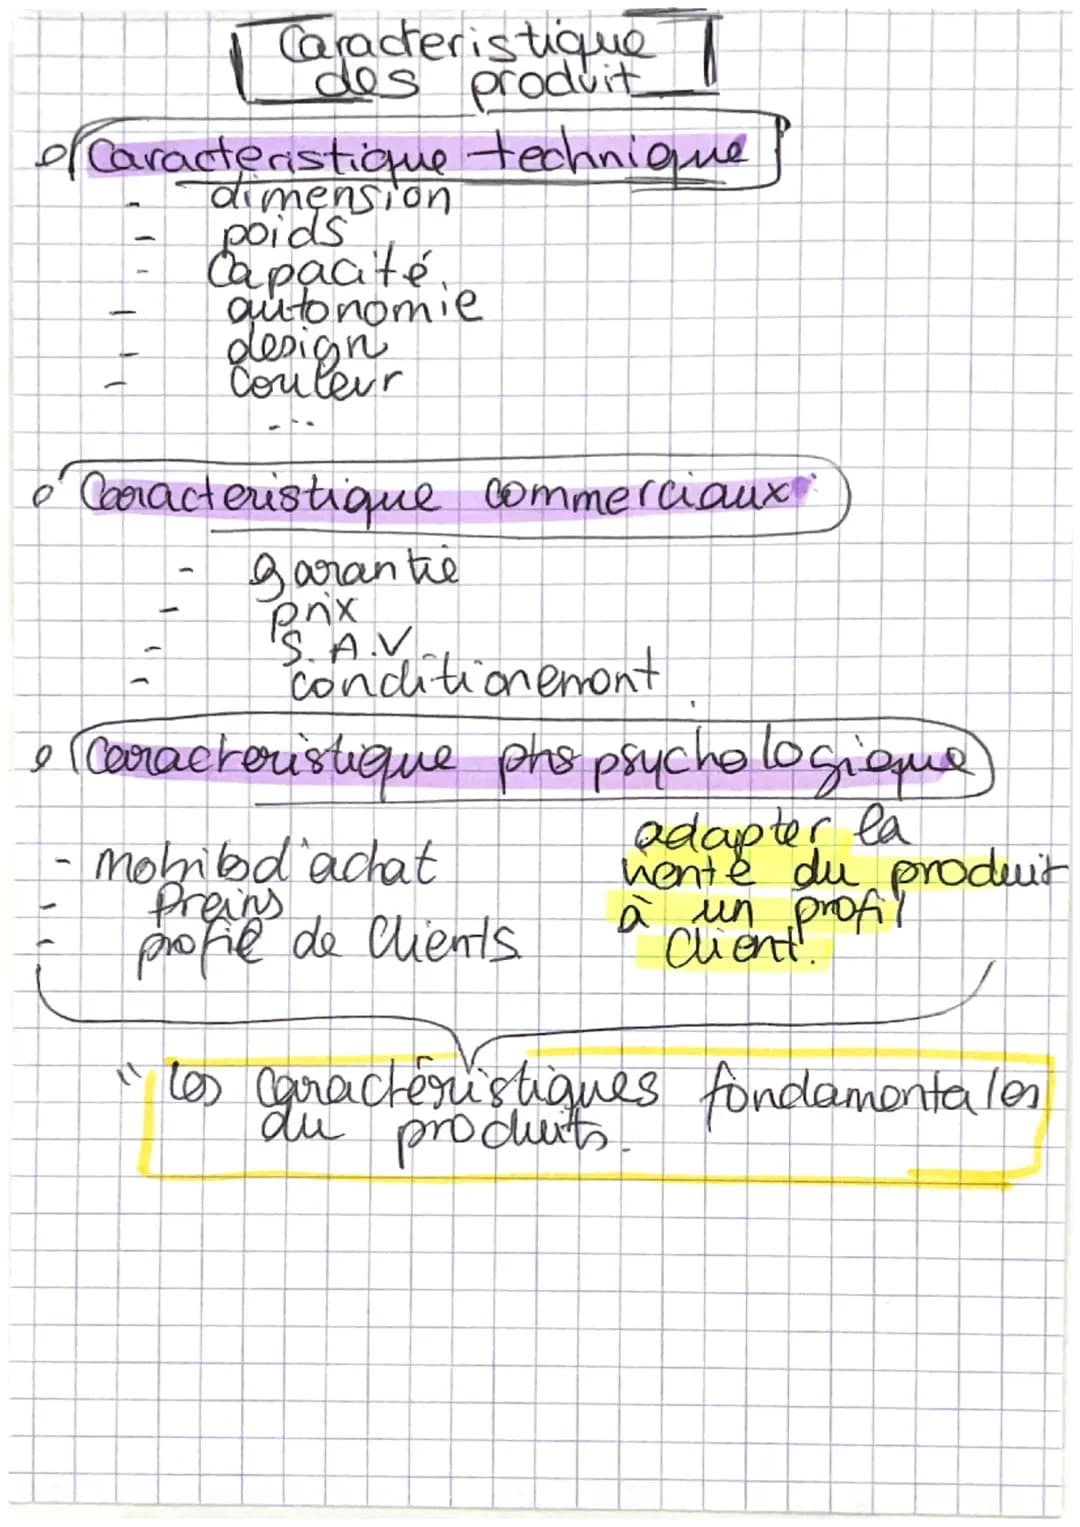 Caracteristique
des produit
Caracteristique technique
- dimension
- poids
- Capacité
- autonomie
- design
- Couleur
...
Caracteristique commerciaux
- garantie
- prix
- S.A.V
- conditionement
Caracteristique phs psychologique
- mobibod'achat
- freins
- profil de Clients
adapter la
vente du produit
à un profil
Client.
" les caractéristiques fondamentales
du produits.